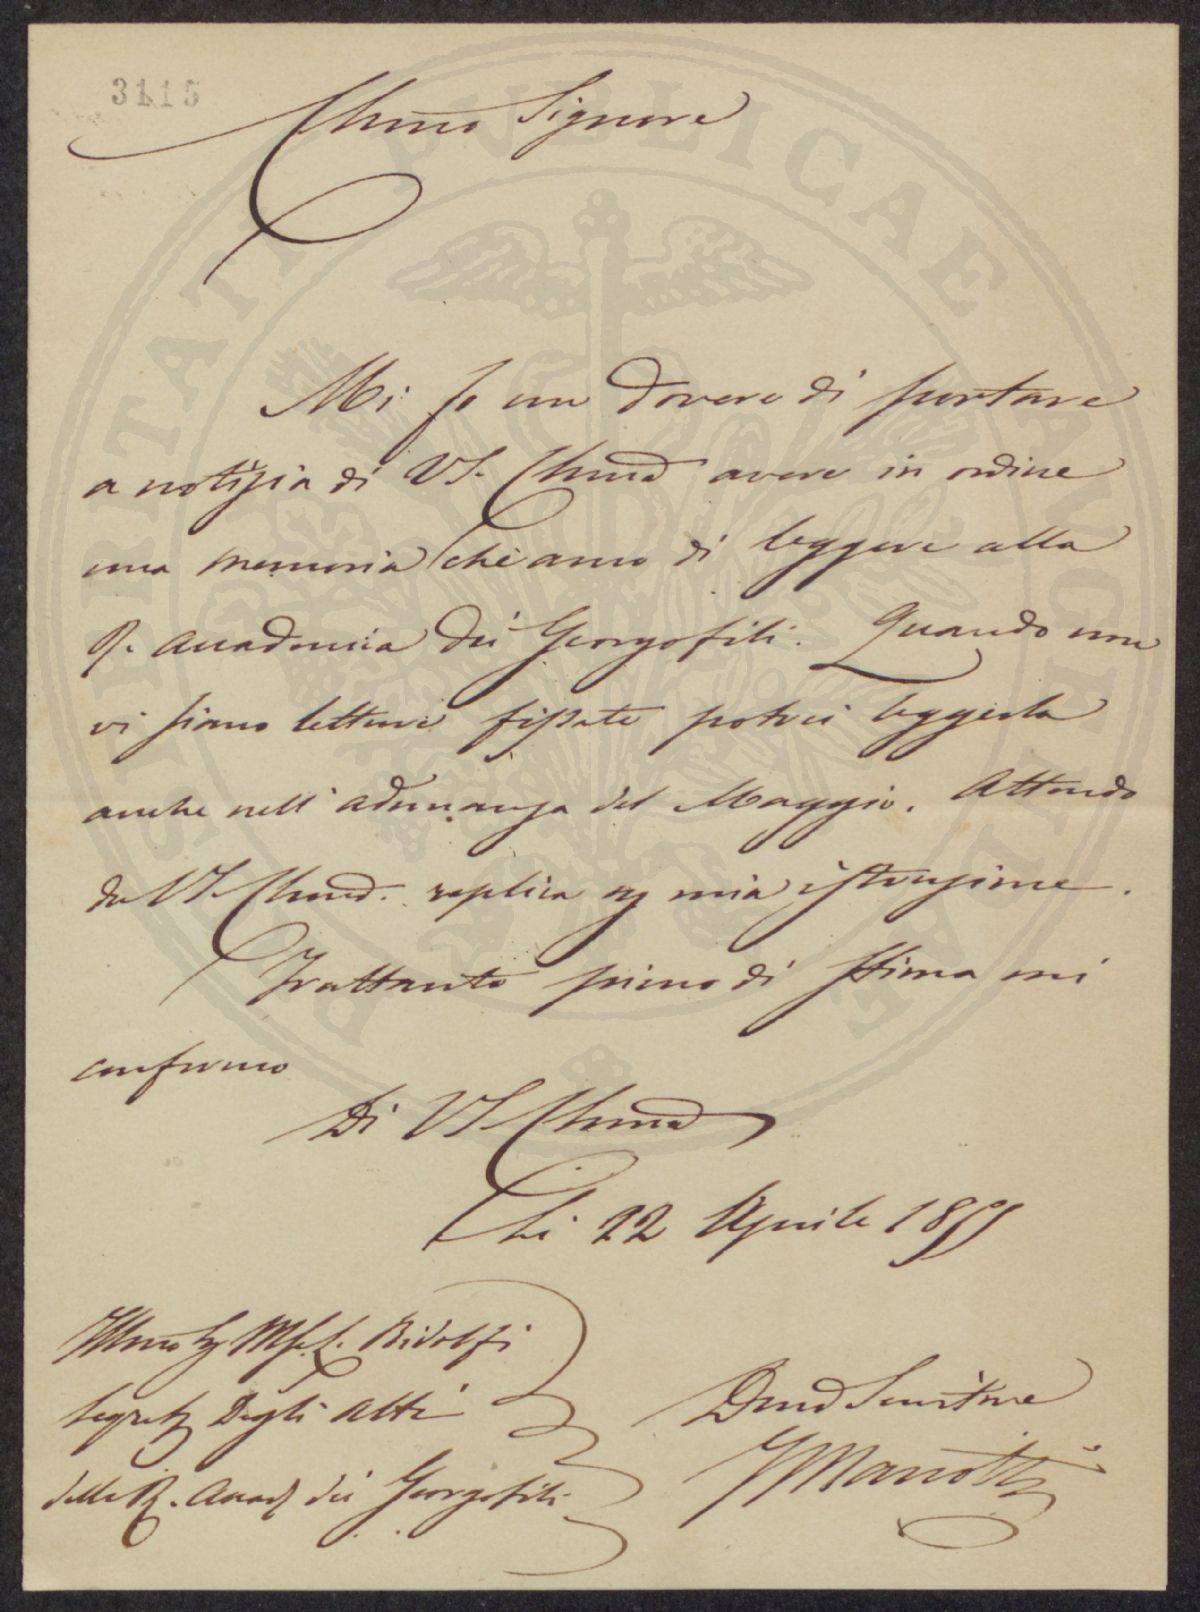 3415
Chmo Signore
Mi fo un dovere di portare
a notizia di VS. Chma avere in ordine
una memoria che amo di leggere alla
R. Accademia dei Georgofili. Quando non
vi siano letture fissate potrei leggerla
anche nell' adunanza del Maggio. Attendo
da VS. Chma. replica mia istruzione.
Frattanto pieno di stima mi
confermo
Di VS Chma
Li 22 Aprile 1855
Illmo Ridolfi
Segret Degli Atti
della R. Accad dei Georgofili
Devmo Servitore
Manotti
PROSPERITATI PUBLICAE AUGENDAE